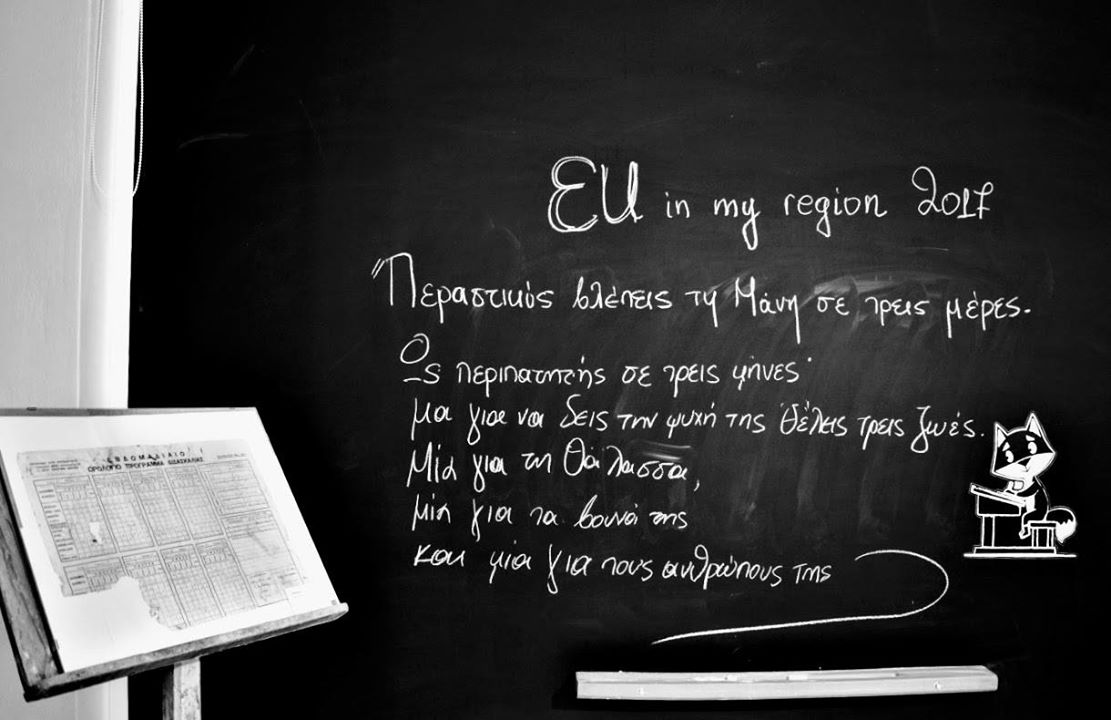 EU in my region 2017
"Περαστικός βλέπεις τη Μάνη σε τρεις μέρες.
Ως περιπατητής σε τρεις μήνες·
μα για να δεις την ψυχή της θέλεις τρεις ζωές.
Μία για τη Θάλασσα,
μία για τα βουνά της
και μία για τους ανθρώπους της
ΕΒΔΟΜΑΔΙΑΙΟ
ΩΡΟΛΟΓΙΟ ΠΡΟΓΡΑΜΜΑ ΔΙΔΑΣΚΑΛΙΑΣ